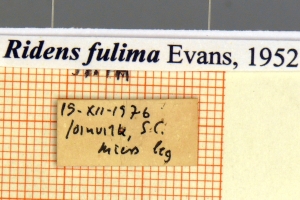 Ridens fulima Evans, 1952
15-XII-1976
Joinville, S.C.
Miers leg